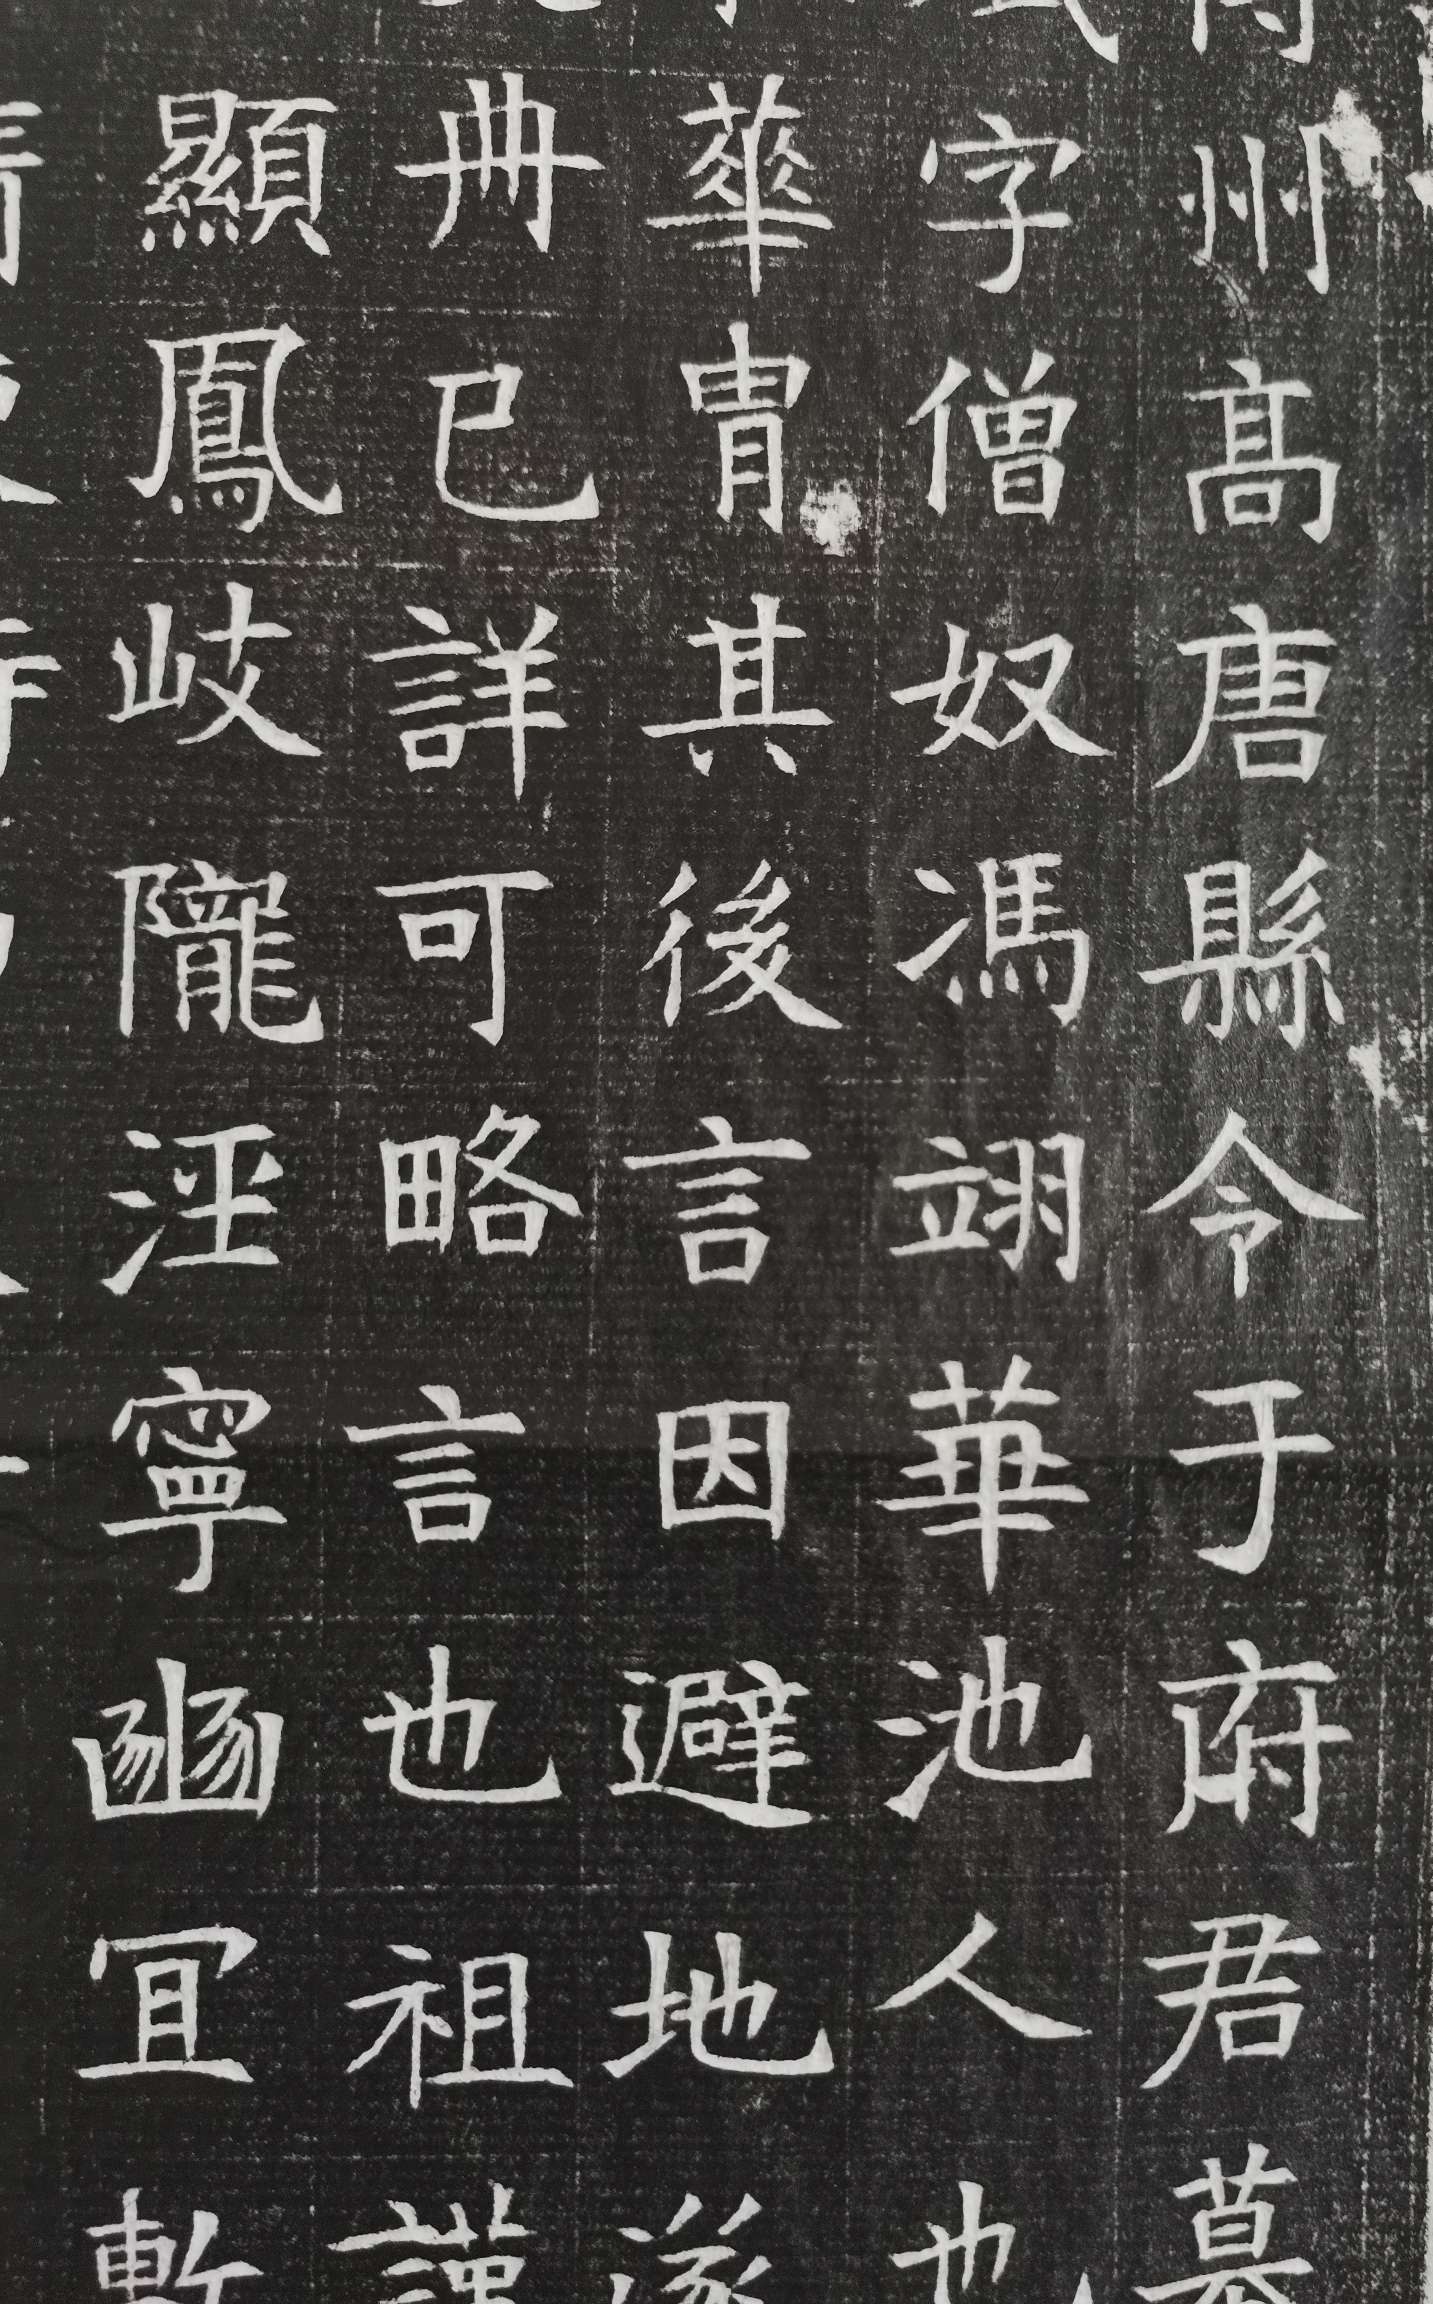 州高唐縣令于府君墓
字僧奴馮翊華池人也
華胄其後言因避地遂
冊已詳可略言也祖謹
顯鳳岐隴涇寧豳宜暫